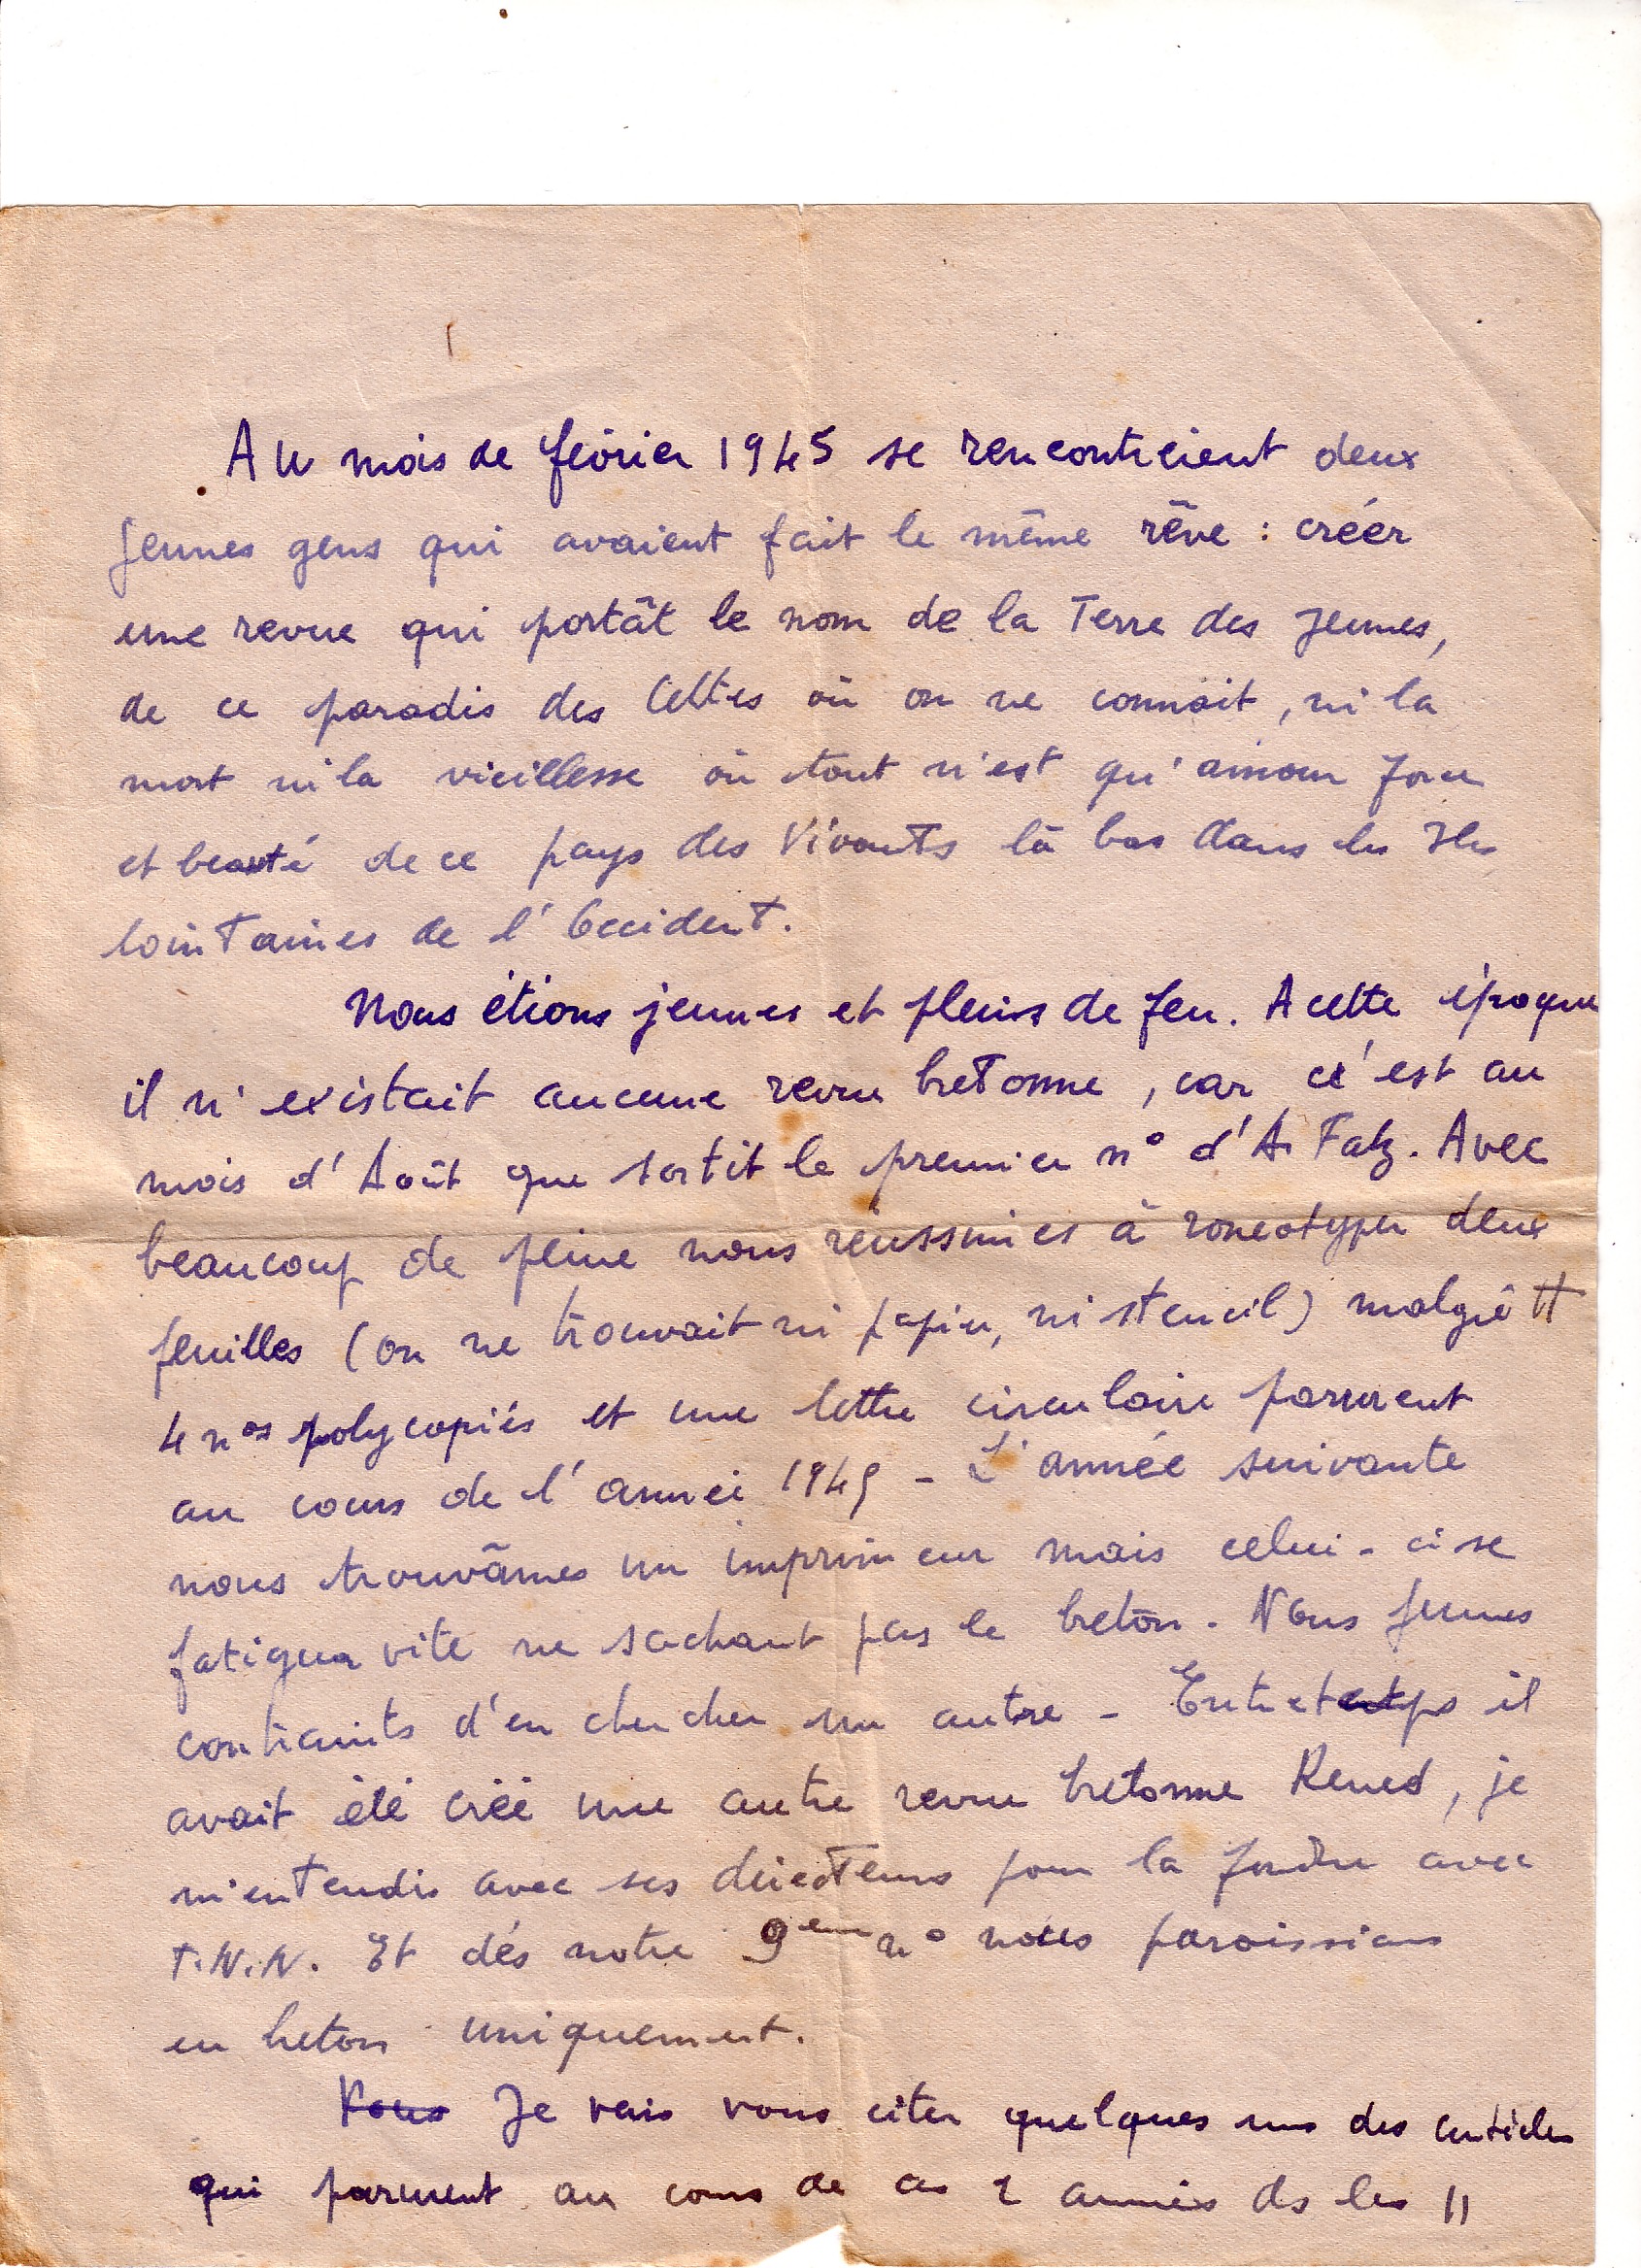 Au mois de février 1945 se rencontrèrent deux
jeunes gens qui avaient fait le même rêve : créer
une revue qui portât le nom de la Terre des Jeunes,
de ce paradis des Celtes où on ne connait, ni la
mort ni la vieillesse où tout n'est qu'amour force
et beauté de ce pays des Vivants là bas dans les Iles
lointaines de l'Occident.
Nous étions jeunes et pleins de feu. A cette époque
il n'existait aucune revue bretonne, car c'est au
mois d'Août que sortit le premier n° d'Ar Falz. Avec
beaucoup de peine nous réussimes à ronéotyper deux
feuilles (on ne trouvait ni papier, ni stencil) malgré tt
4 nos polycopiés et une lettre circulaire parurent
au cours de l'année 1945 - L'année suivante
nous trouvâmes un imprimeur mais celui-ci se
fatigua vite ne sachant pas le breton. Nous fumes
contraints d'en chercher un autre - Entretemps il
avait été créé une autre revue bretonne Kened, je
m'entendis avec ses directeurs pour la fondre avec
T.N.N. Et dés notre 9eme n° nous paraissions
en breton uniquement.
Nous Je vais vous citer quelques uns des articles
qui parurent au cours de ces 2 années ds les 11